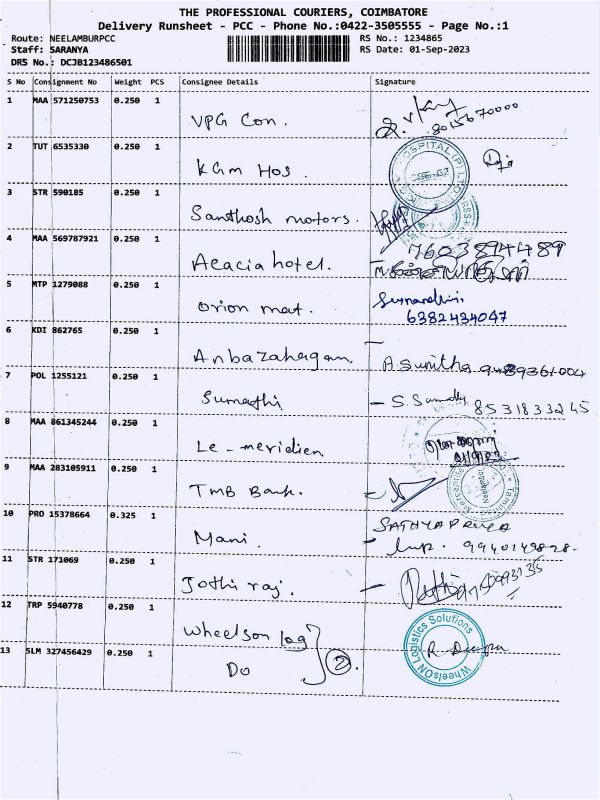 THE PROFESSIONAL COURIERS, COIMBATORE
Delivery Runsheet - PCC - Phone No.:0422-3505555 - Page No.:1
Route: NEELAMBURPCC
RS No.: 1234865
Staff: SARANYA
RS Date: 01-Sep-2023
DRS No.: DCJB123486501
S No Consignment No Weight PCS Consignee Details Signature
1 MAA 571250753 0.250 1 VPG Con. 8015670000
2 TUT 6535330 0.250 1 KGM Hos. HOSPITAL (P) LTD
3 STR 590185 0.250 1 Santhosh motors.
4 MAA 569787921 0.250 1 Acacia hotel. 7603894489
5 MTP 1279088 0.250 1 Orion mat. 6382434047
6 KDI 862765 0.250 1 Anbazahagan A Sunitha 9489361004
7 POL 1255121 0.250 1 Sumathi - S. 8531833245
8 MAA 861345244 0.250 1 Le-meridien
9 MAA 283105911 0.250 1 TMB Bank.
10 PRO 15378664 0.325 1 Mani. SATHYAPRIYA
9940149828.
11 STR 171069 0.250 1 Jothi raj.
12 TRP 5940778 0.250 1 Wheelson log WheelsON Logistics Solutions
13 SLM 327456429 0.250 1 Do 2. R Deepa